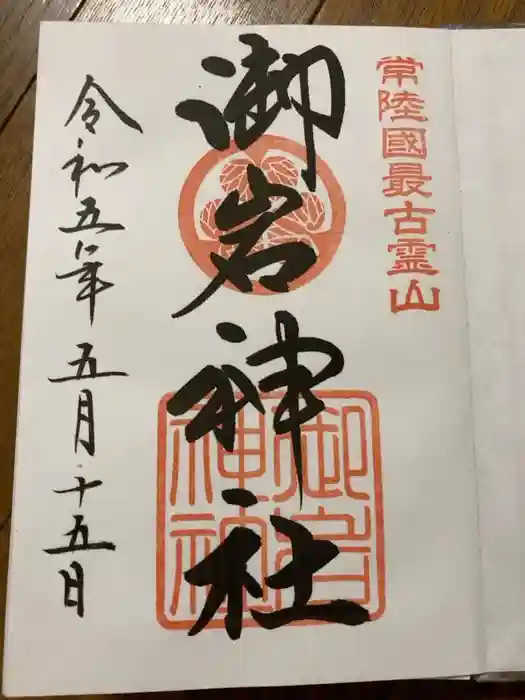 常陸國最古霊山
御岩神社
令和五年五月十五日